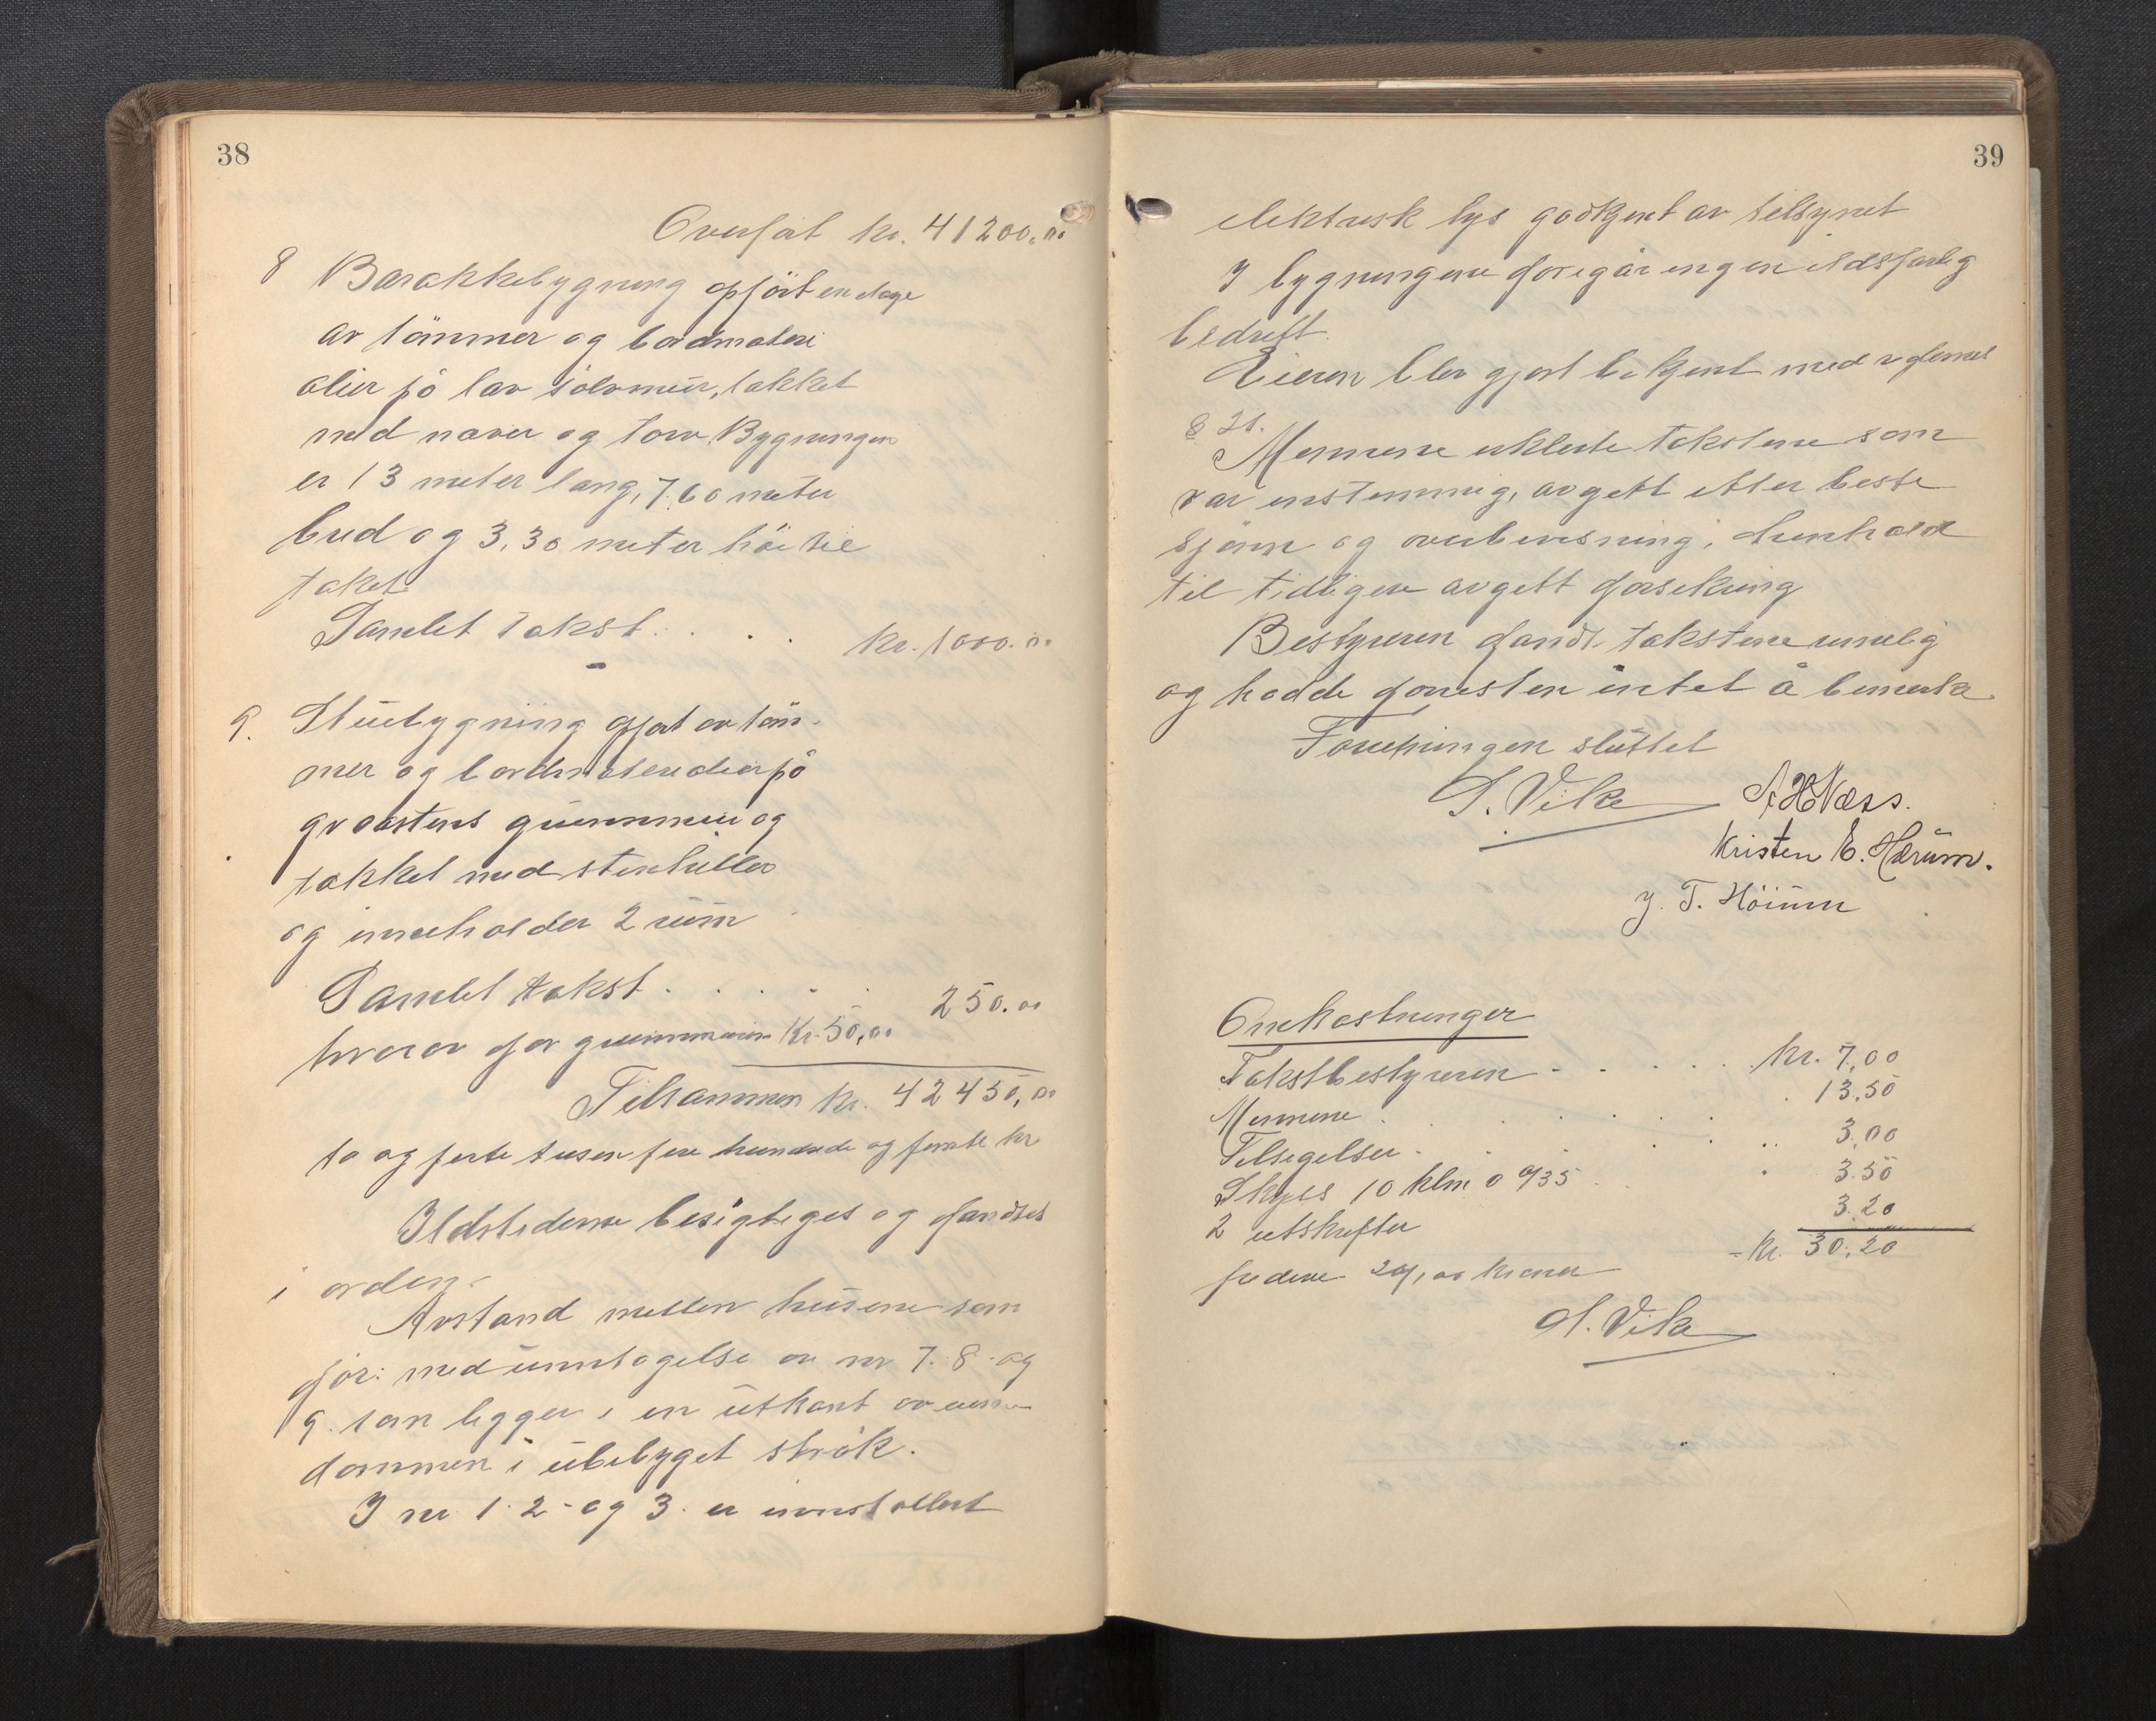 38
Overfört kr. 41200.00
8 Barakkebygning opfört en etage
av tömmer og bordmateri
alier på lav sålvmur, takket
med næver og torv. Bygningen
er 13 meter lang, 7.60 meter
bred og 3.30 meter höi til
taket
Samlet takst . . . kr. 1000.00
9. Stuebygning opfört av töm-
mer og bordmaterialier på
graastens grunnmur og
takket med stenheller
og inneholder 2 rum
Samlet takst . . . . . 250.00
hvorav for grunnmuren Kr. 50,00
Tilsammen kr. 42450,00
to og førte tusen fire hundrede og femte kr
Ildstederne besigtiges og fandtes
i orden.
Avstand mellem husene som
för: med unntagelse av nr 7. 8. og
9. som ligger i en utkant av eien
dommen i ubebygget strök.
I nr 1. 2 - og 3. er innstallert
39
elektrisk lys godkjent av tilsynet
I bygningene foregår ingen ildsfarlig
bedrift.
Eieren blev gjort bekjent med
§ 21.
Mennene erklerte takstene som
var enstemmig, avgett etter beste
skjönn og overbevisning i henhold
til tidligere avgett forsikring
Bestyreren fandt takstene rimelig
og hadde foresten intet å bemerke.
Forretningen sluttet
S. Vike A H Næss.
Kristen E. Hærum.
J. T. Höinm
Omkostninger
Takstbestyreren . . . . . kr. 7,00
Mennene . . . . . . 13.50
Tilsigelser . . . . 3.00
Skyss 10 klm a 0/35 . . 3.50
2 utskrifter 3.20
- kr. 30.20
tredeve 20/00 kroner
S. Vike